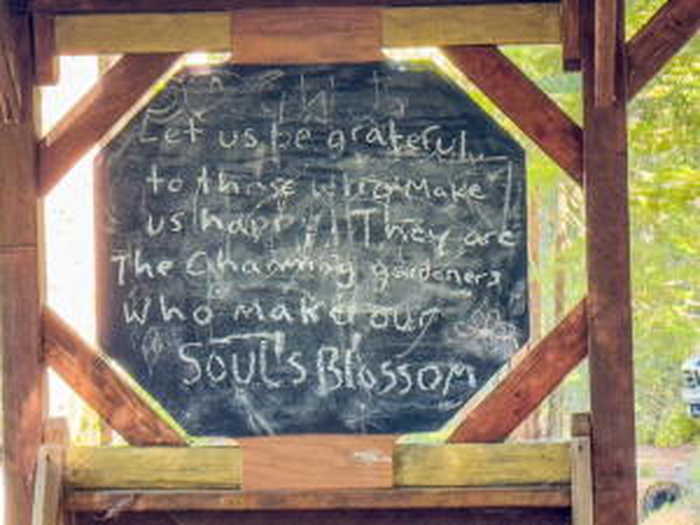 Let us be grateful
to those who Make
us happy! They are
The Charming gardeners
Who make our
SOUL'S BLOSSOM